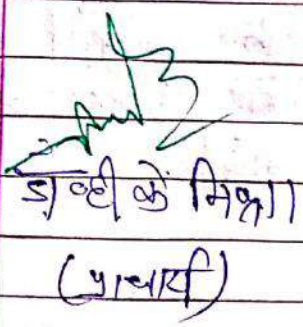 डॉ व्ही के मिश्रा
(प्राचार्य)